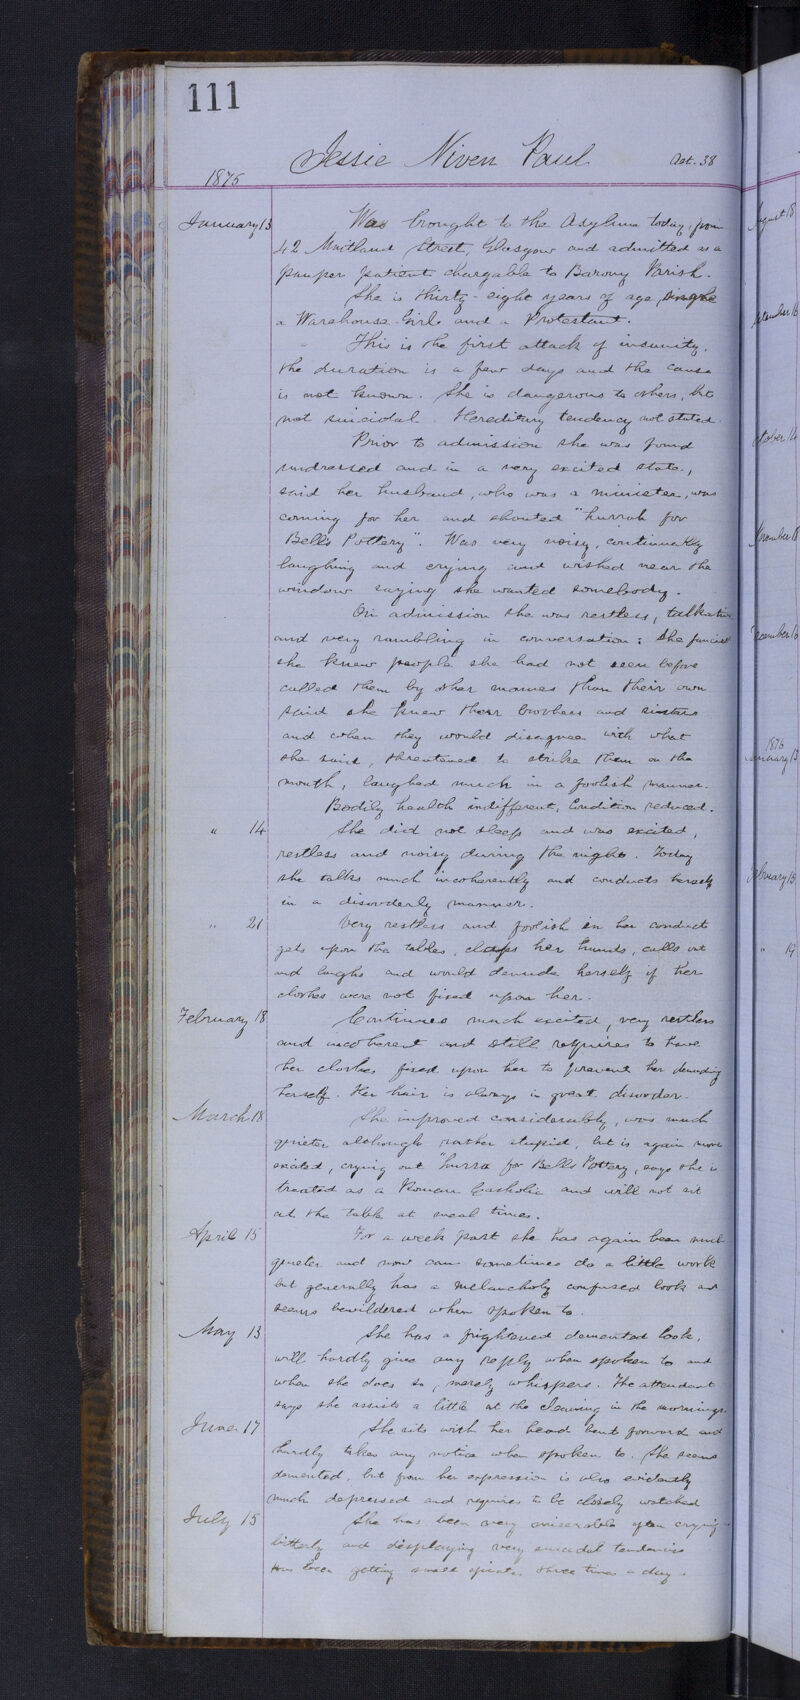 111
Jessie Niven Paul Aet. 38
1875
January 13 Was brought to the Asylum today, from
42 Maitland Street, Glasgow and admitted as a
pauper patient chargable to Barony Parish.
She is thirty-eight years of age, single
a Warehouse Girl and a Protestant.
This is the first attack of insanity.
the duration is a few days and the cause
is not known. She is dangerous to others, but
not suicidal. Hereditary tendency not stated.
Prior to admission she was found
undressed and in a very excited state,
said her husband, who was a minister, was
coming for her and shouted "hurrah for
Bells Pottery". Was very noisy, continually
laughing and crying and wished near the
window saying she wanted somebody.
On admission she was restless, talkative
and very rambling in conversation: She fancied
she knew people she had not seen before
called them by other names than their own
said she knew their brothers and sisters
and when they would disagree with what
she said, threatened to strike them on the
mouth, laughed much in a foolish manner.
Bodily health indifferent, Condition reduced.
" 14 She did not sleep and was excited,
restless and noisy during the night. Today
she talks much incoherently and conducts herself
in a disorderly manner.
" 21 Very restless and foolish in her conduct
gets upon the tables, claps her hands, calls out
and laughs and would denude herself if her
clothes were not fixed upon her.
February 18 Continues much excited, very restless
and incoherent and still requires to have
her clothes fixed upon her to prevent her denuding
herself. Her hair is always in great disorder.
March 18 She improved considerably, was much
quieter although rather stupid, but is again more
excited, crying out "hurra for Bells Pottery, says she is
treated as a Roman Catholic and will not sit
at the table at meal times.
April 15 For a week past she has again been much
quieter and now can sometimes do a little work
but generally has a melancholy confused look and
seems bewildered when spoken to.
May 13 She has a frightened demented look,
will hardly give any reply when spoken to and
when she does so, merely whispers. The attendant
says she assists a little at the cleaning in the mornings.
June 17 She sits with her head bent forward and
hardly takes any notice when spoken to. She seems
demented, but from her expression is also evidently
much depressed and requires to be closely watched
July 15 She has been very miserable often crying
bitterly and displaying very suicidal tendencies
Has been getting small three times a day.
August 18
September 16
October 14
November 18
December 16
1876
January 13
February 15
" 17